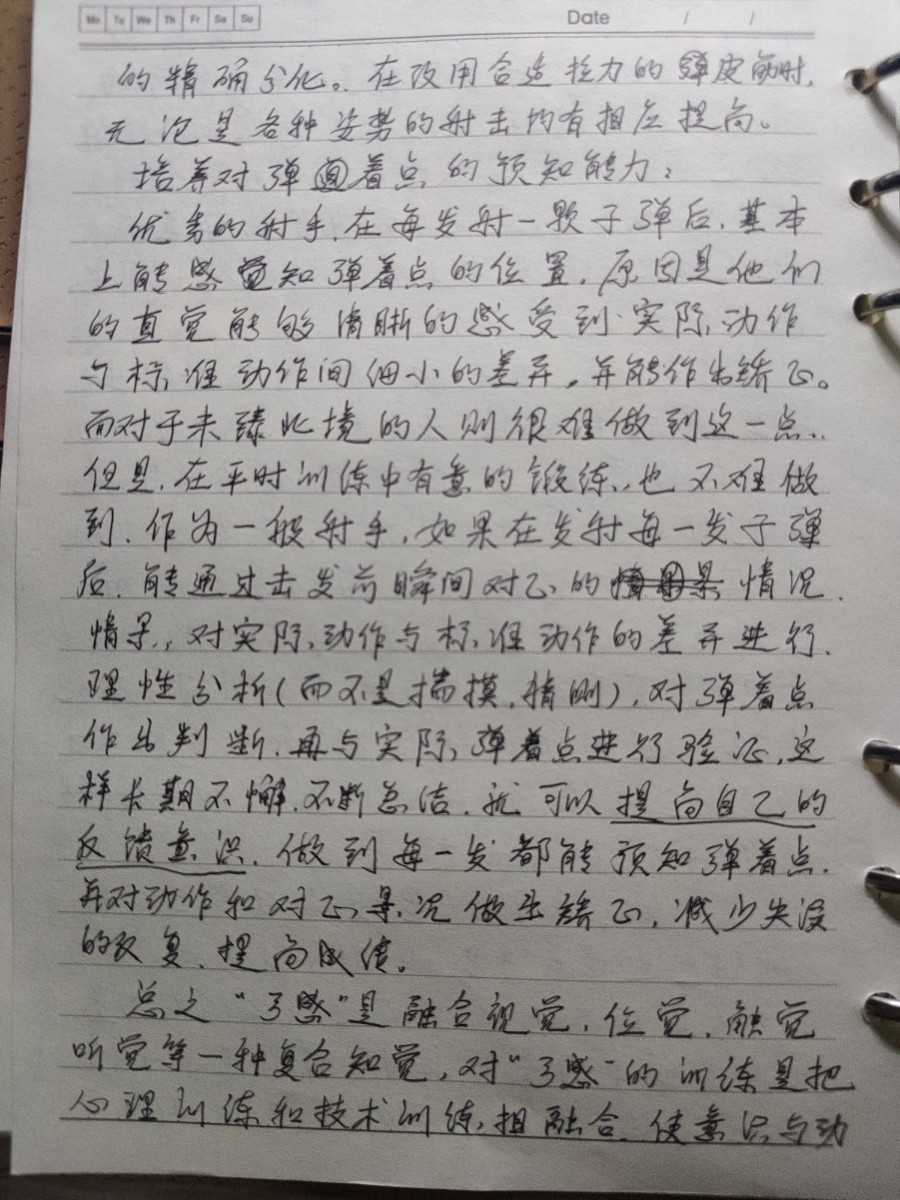 Mo Tu We Th Fr Sa Su Date / /
的精确分化。在改用合适拉力的弹皮筋时,
无论是各种姿势的射击均有相应提高。
培养对弹着点的预知能力:
优秀的射手,在每发射一颗子弹后,基本
上能感觉知弹着点的位置,原因是他们
的直觉能够清晰的感受到实际动作
与标准动作间细小的差异,并能作出矫正。
而对于未臻此境的人则很难做到这一点,
但是,在平时训练中有意的锻练,也不难做
到,作为一般射手,如果在发射每一发子弹
后,能通过击发前瞬间对正的情况,
情景,对实际动作与标准动作的差异进行
理性分析(而不是揣摸,猜测),对弹着点
作出判断,再与实际弹着点进行验证,这
样长期不懈,不断总结,就可以提高自己的
反馈意识,做到每一发都能预知弹着点,
并对动作和对正景况做出矫正,减少失误
的反复,提高成绩。
总之"手感"是融合视觉,位觉,触觉
听觉等一种复合知觉,对"手感"的训练是把
心理训练和技术训练,相融合,使意识与动